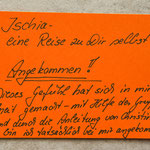 Ischia -
eine Reise zu Dir selbst
Angekommen!!
Dieses Gefühl hat sich in mir
hat gemacht - mit Hilfe der
und durch die Anleitung von Christin
bin ich tatsächlich bei mir angekom